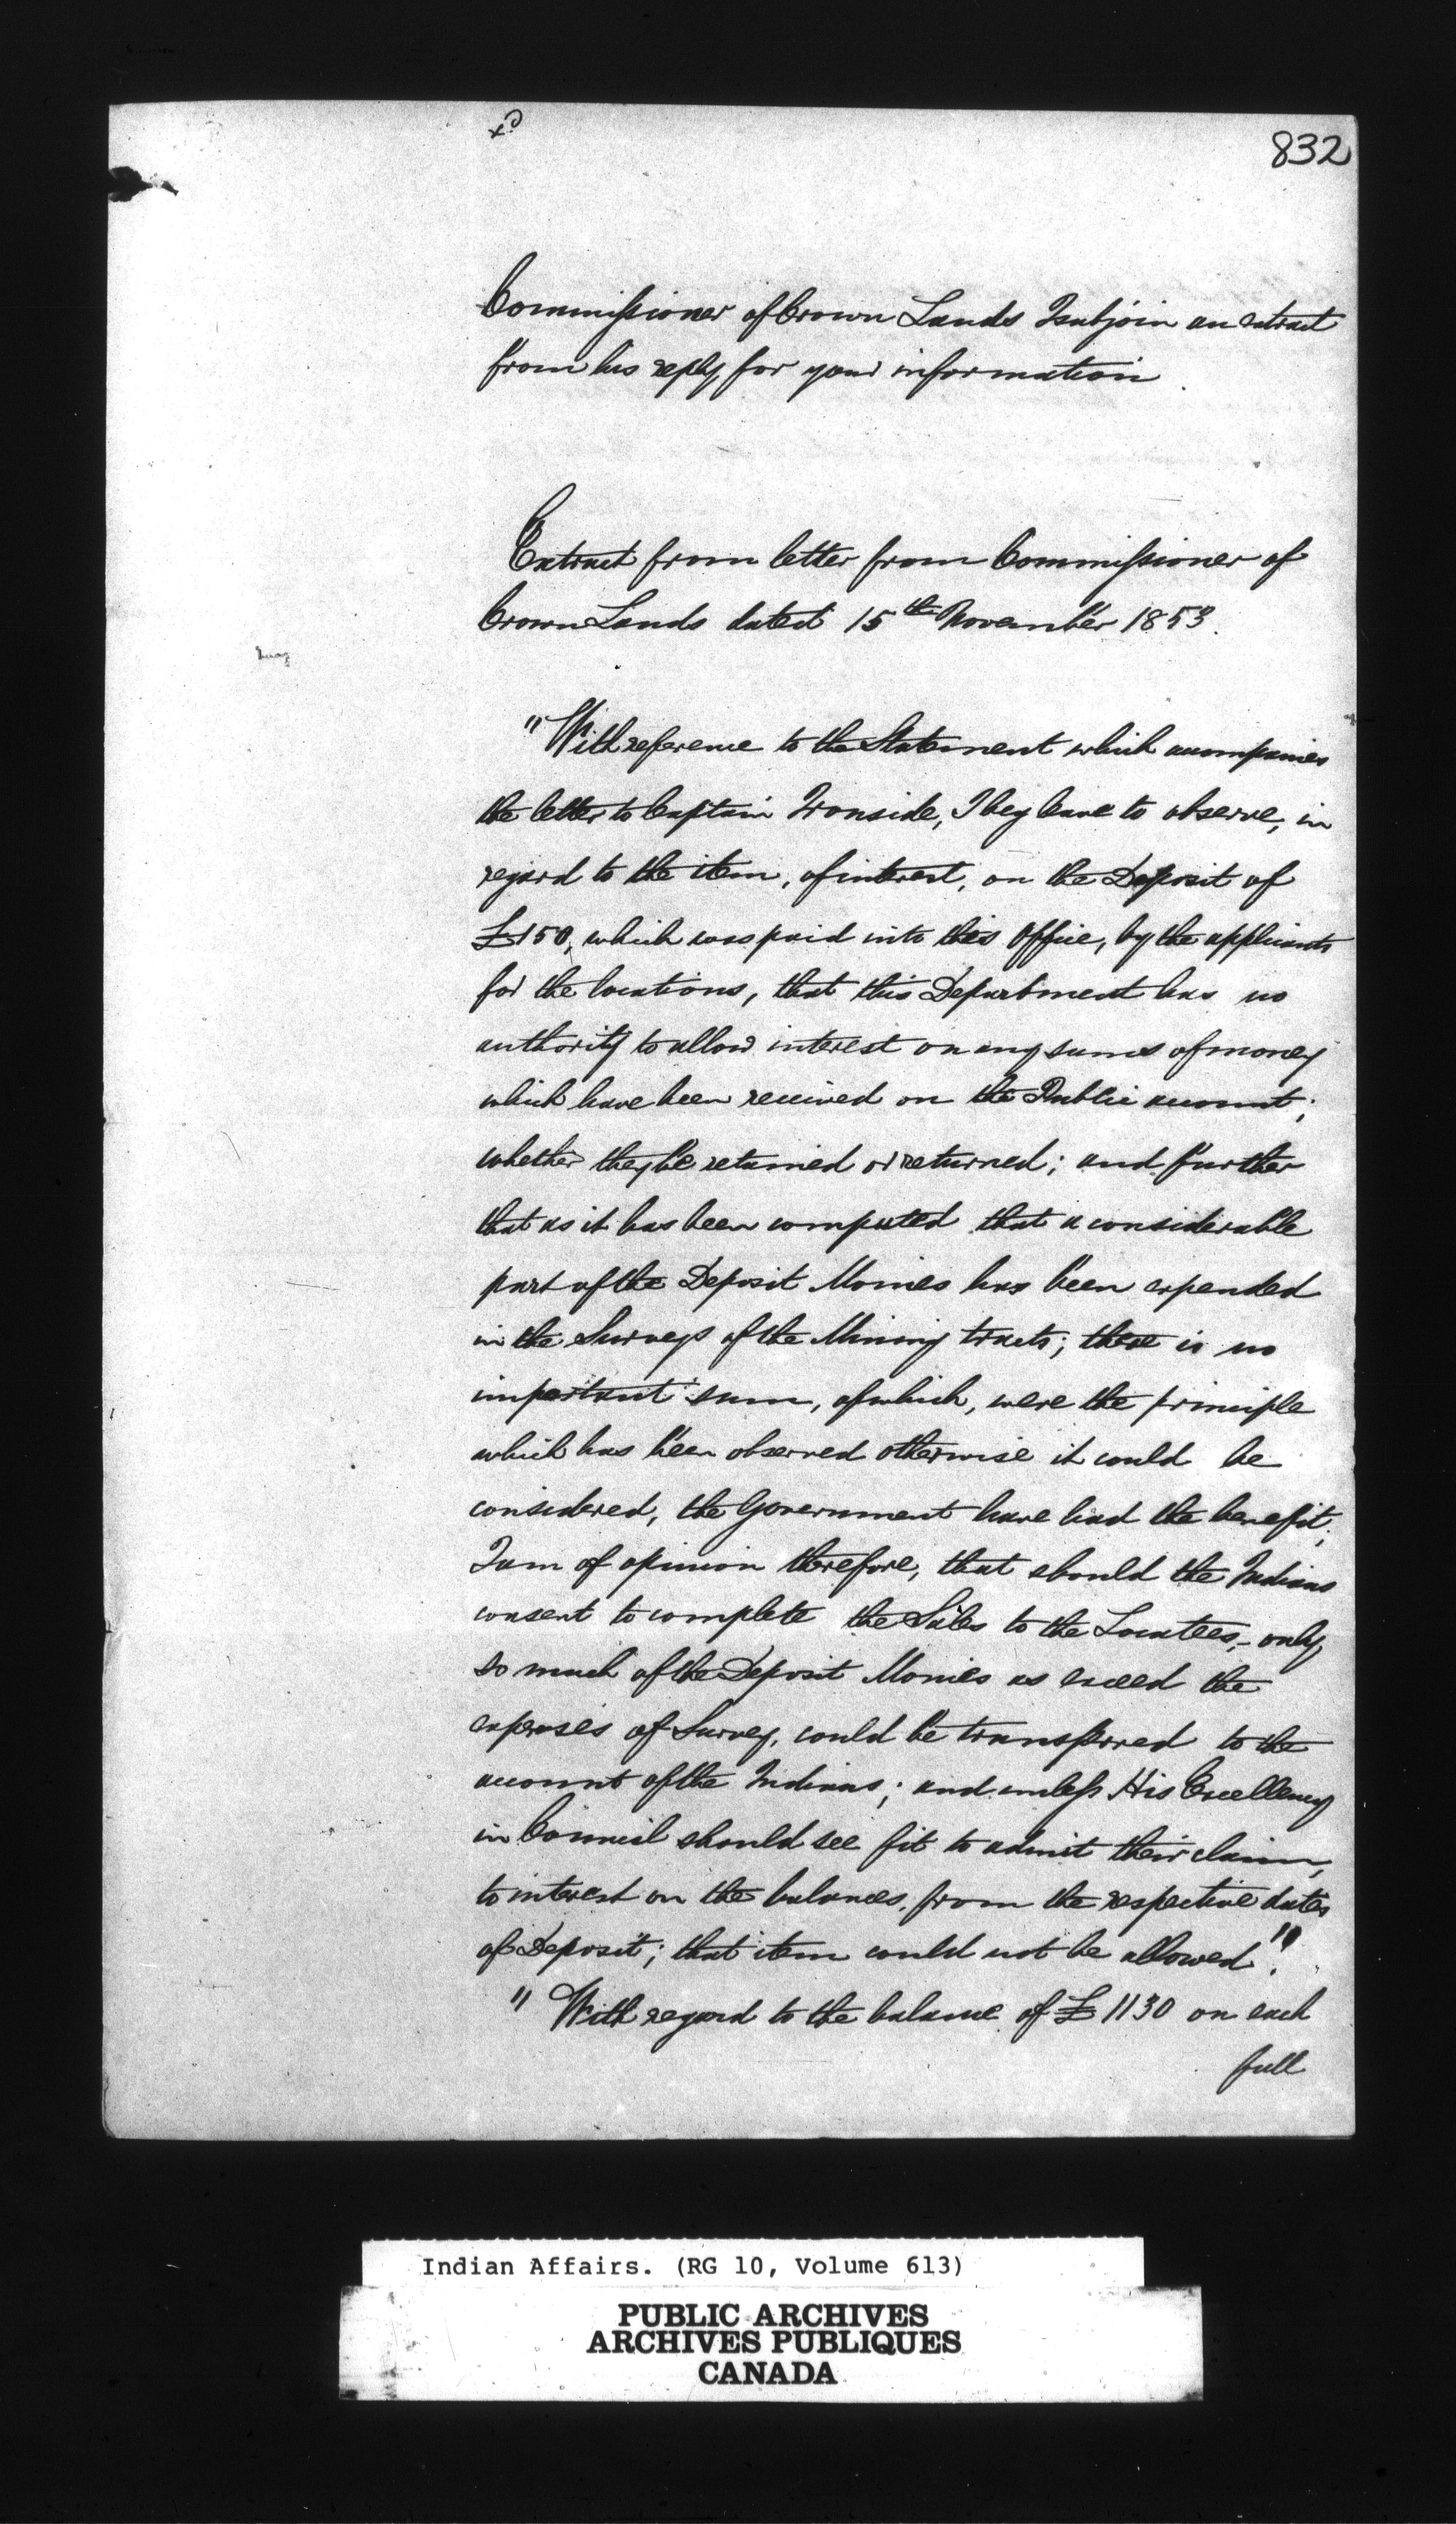 832
Commissioner of Crown Lands I subjoin an extract
from his reply for your information
Extract from letter from Commissioner of
Crown Lands dated 15th November 1853.
"With reference to the Statement which accompanies
the letter to Captain Ironside, I beg leave to observe, in
regard to the item, of interest, on the Deposit of
£150, which was paid into this Office, by the applicants
for the locations, that this Department has no
authority to allow interest on any sums of money
which have been received on the Public account;
whether they be retained or returned; and further
that as it has been computed that a considerable
part of the Deposit Monies has been expended
in the Surveys of the Mining tracts; there is no
important sum, of which, were the principle
which has been observed otherwise it could be
considered, the Government have had the benefit;
I am of opinion therefore, that should the Indians
consent to complete the Sales to the Locatees, only
so much of the Deposit Monies as exceed the
expenses of Survey, could be transferred to the
account of the Indians; and unless His Excellency
in Council should see fit to admit their claim,
to interest on the balances, from the respective dates
of Deposit; that item could not be allowed."
"With regard to the balance of £1130 on each
full
Indian Affairs. (RG 10, Volume 613)
PUBLIC ARCHIVES
ARCHIVES PUBLIQUES
CANADA